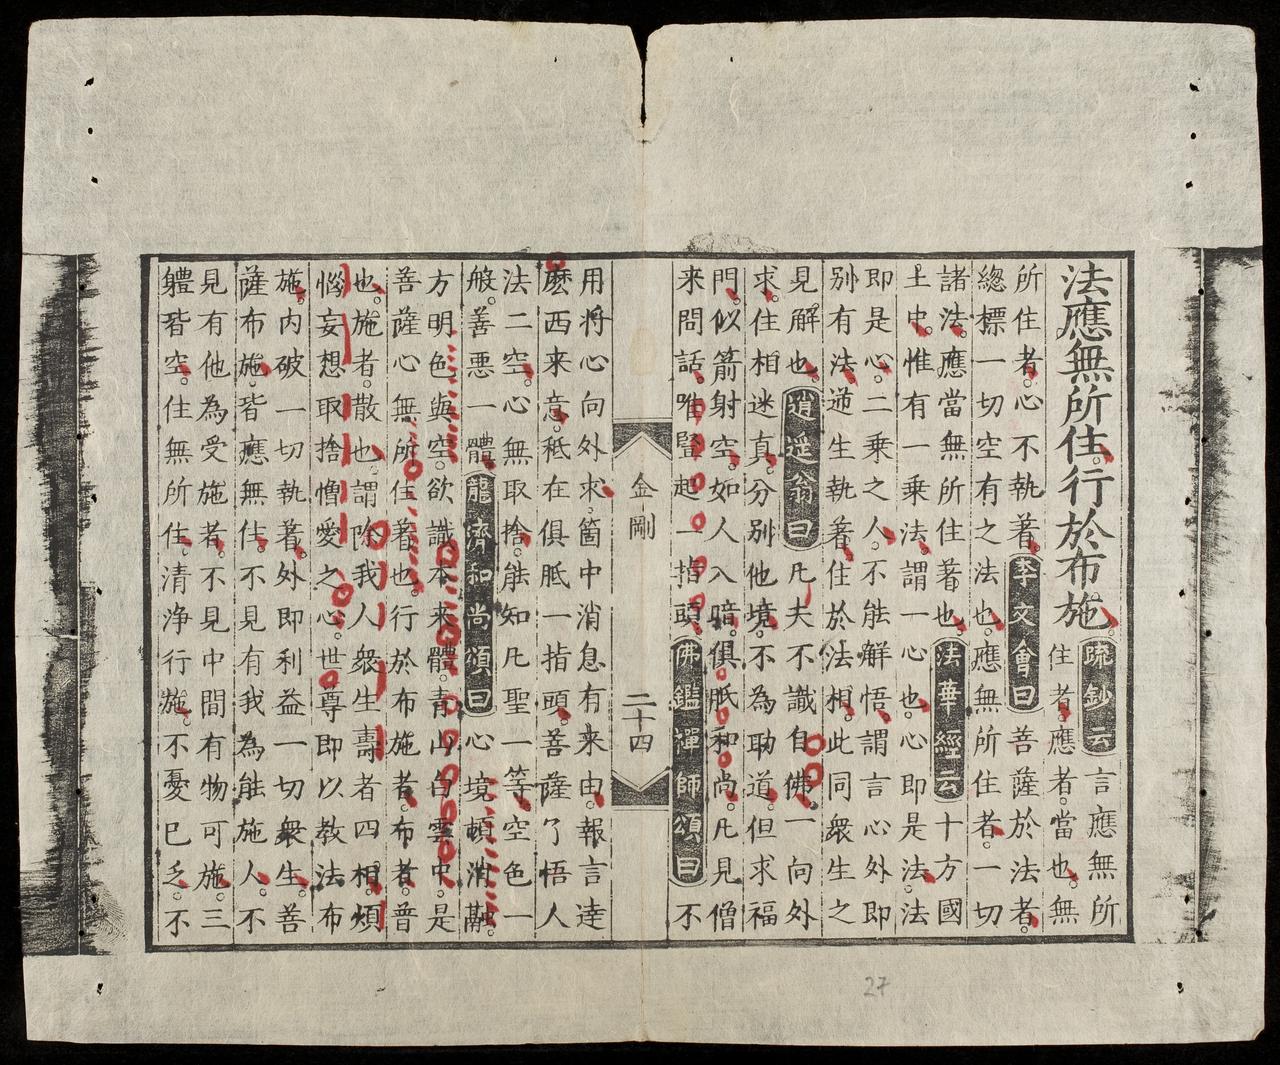 法應無所住。行於布施。疏鈔云言應無所
住者。應者。當也。無
所住者。心不執著。李文會曰菩薩於法者。
總標一切空有之法也。應無所住者。一切
諸法。應當無所住著也。法華經云十方國
土中。惟有一乘法。謂一心也。心即是法。法
即是心。二乘之人。不能解悟。謂言心外即
別有法。遞生執著。住於法相。此同衆生之
見解也。逍遥翁曰凡夫不識自佛。一向外
求。住相迷真。分別他境。不為助道。但求福
門。似箭射空。如人入暗。俱胝和尚。凡見僧
来問話。唯竪起一指頭。佛鑑禪師頌曰不
金剛 二十四
用將心向外求。箇中消息有来由。報言達
麽西来意。秪在俱胝一指頭。菩薩了悟人
法二空。心無取捨。能知凡聖一等。空色一
般。善悪一體。龍濟和尚頌曰心境頓消融。
方明色與空。欲識本来體。青山白雲中。是
菩薩心無所住著也。行於布施者。布者。普
也。施者。散也。謂除我人衆生壽者四相。煩
惱妄想取捨憎愛之心。世尊即以教法布
施。内破一切執著。外即利益一切衆生。菩
薩布施。皆應無住。不見有我為能施人。不
見有他為受施者。不見中間有物可施。三
軆皆空。住無所住。清浄行施。不憂已乏。不
27